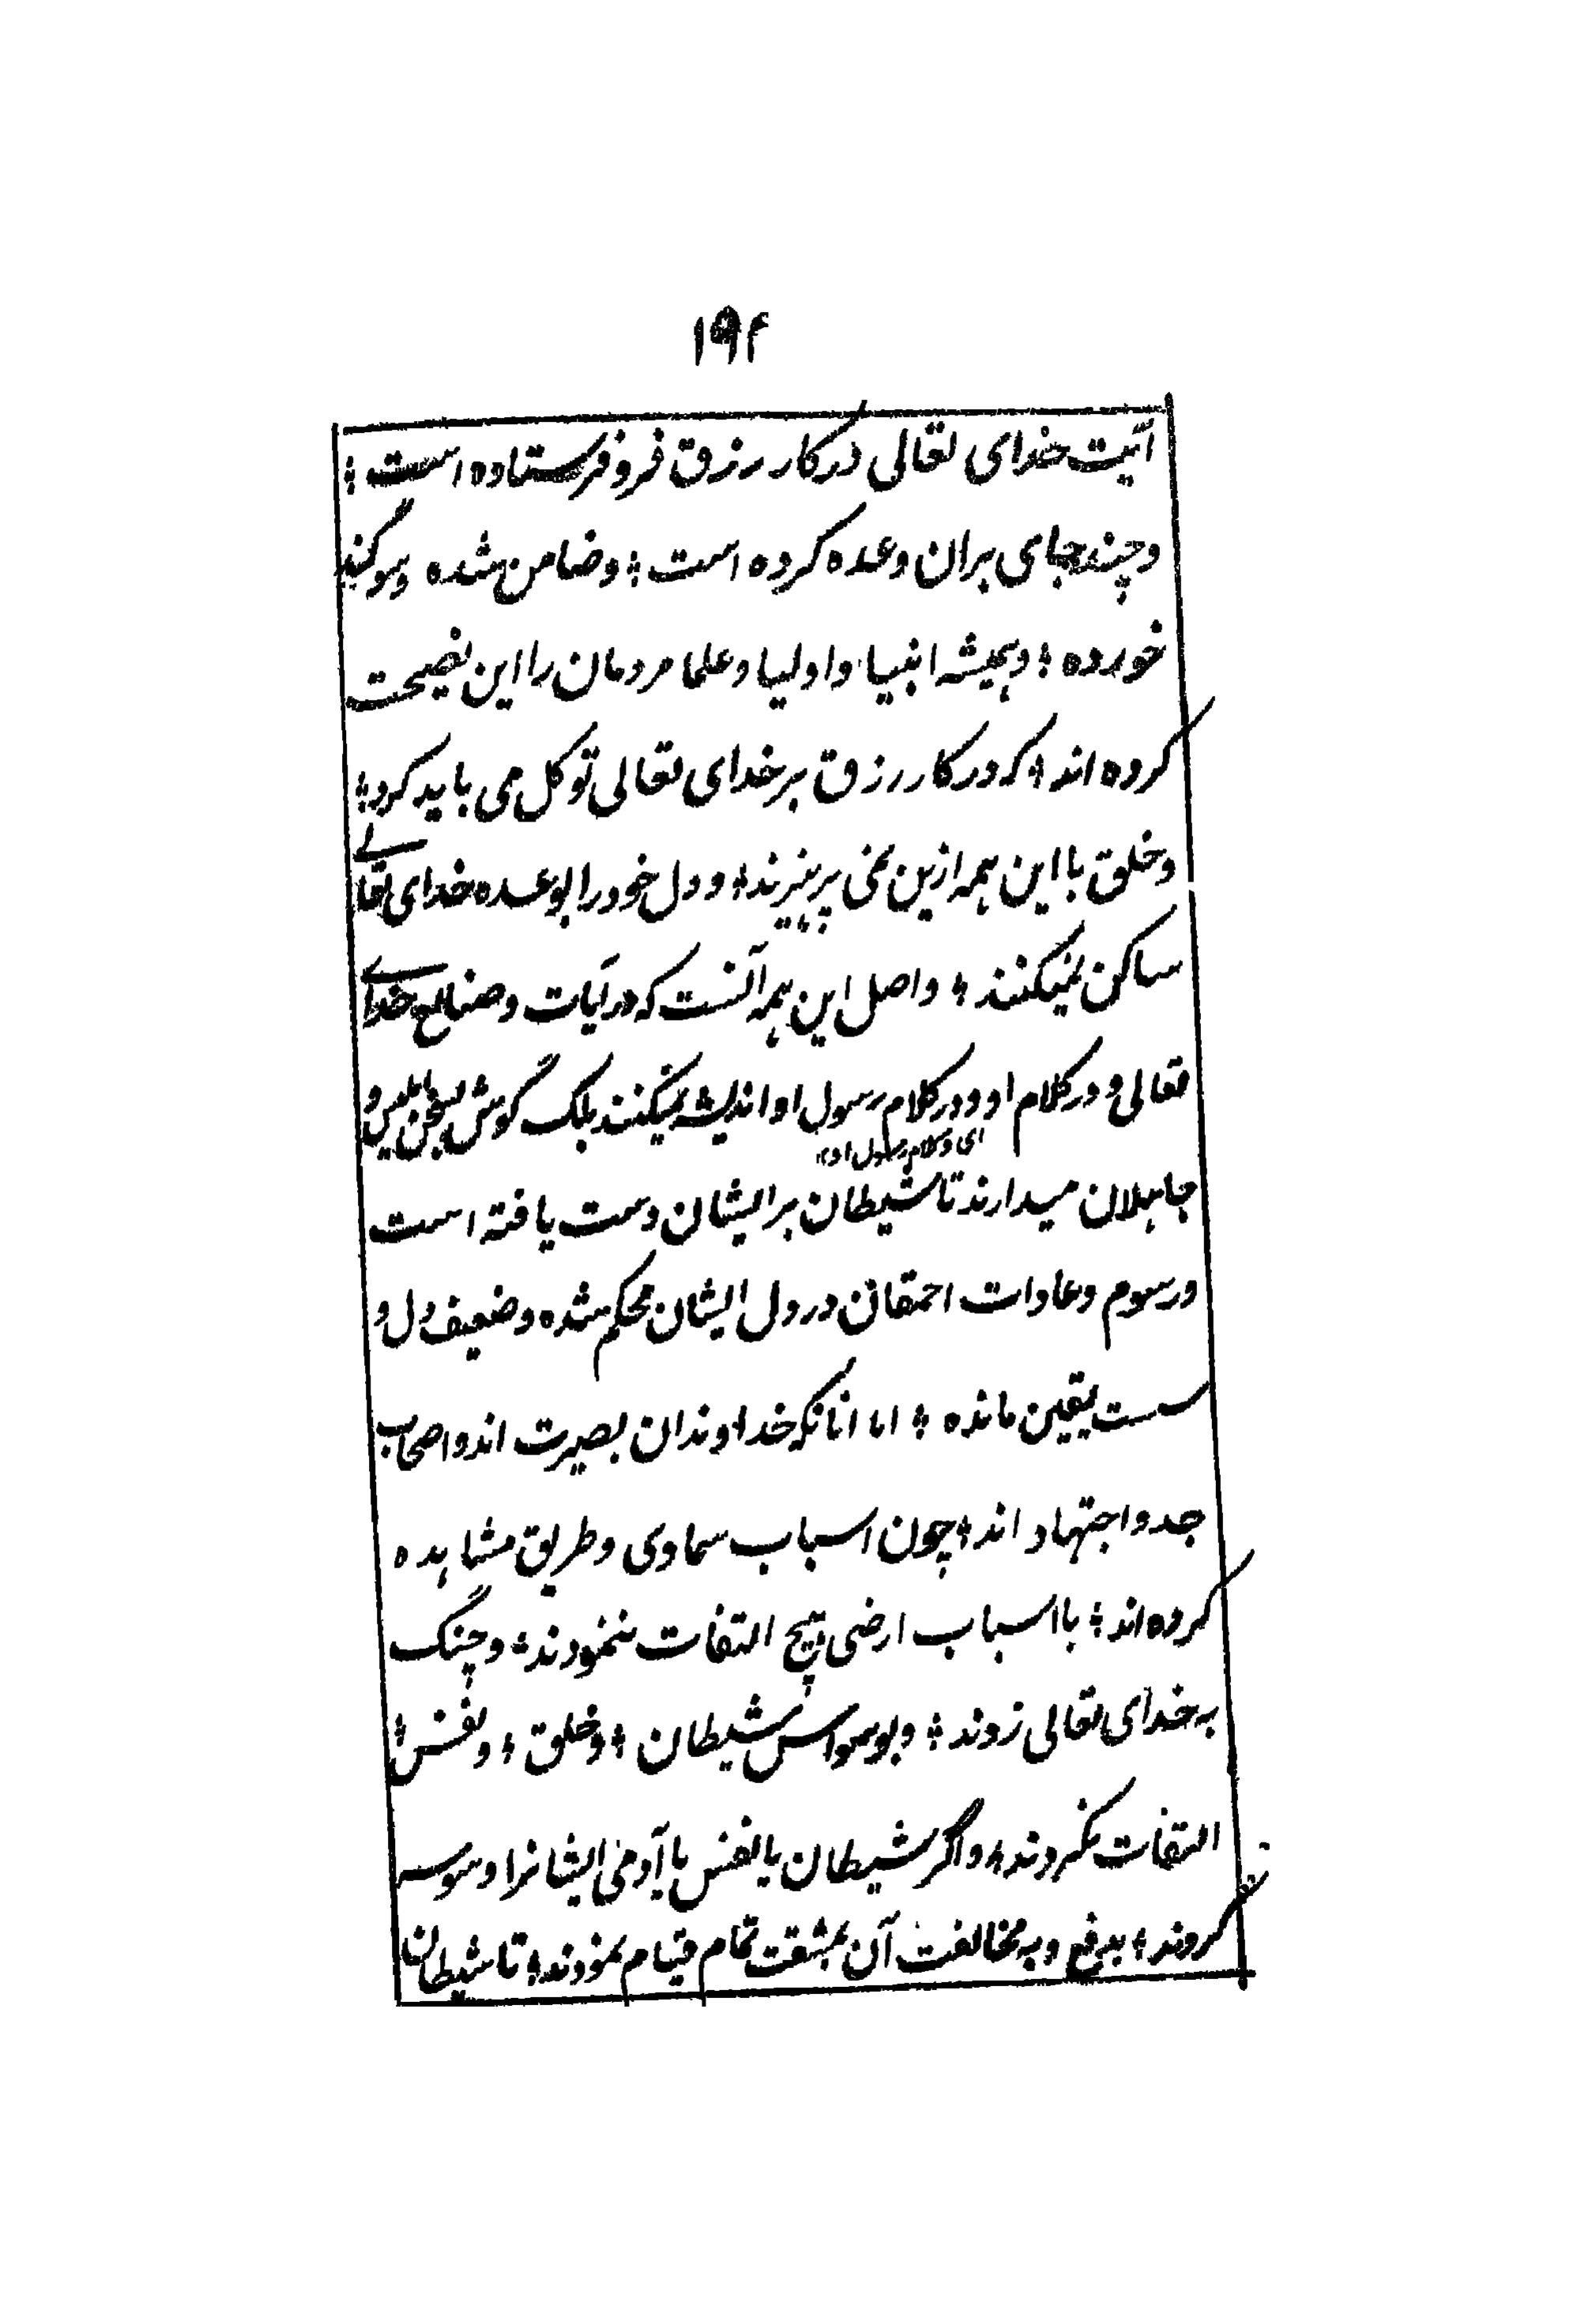 ۱۹۴
آیت خدای تعالی درکار رزق فرو فرستاده است ؛
و چند جای بران وعده کرده است ؛ و ضامن شده و سوگند
خورده ؛ و همیشه انبیا و اولیا و علما مردمان را این نصیحت
کرده اند ؛ که در کار رزق بر خدای تعالی توکل می باید کرد ؛
و خلق با این همه ازین نمی پرهیزند ؛ و دل خود را بوعده خدای تعالی
ساکن نمیکنند ؛ و اصل این همه آنست که در آیات و صنایع خدای
تعالی و در کلام او و در کلام رسول او اندیشه نمیکنند بلک گوش بسخن ابلیس و
ای و کلام رسول او
جاهلان میدارند تا شیطان بر ایشان دست یافته است
و رسوم و عادات احمقان در دل ایشان محکم شده و ضعیف دل و
سست یقین مانده ؛ اما انانکه خداوندان بصیرت اند و اصحاب
جد و اجتهاد اند ؛ چون اسباب سماوی و طریق مشاهده
کرده اند ؛ با اسباب ارضی هیچ التفات ننمودند ؛ و چنگ
به خدای تعالی زدند ؛ و بوسواس شیطان ؛ و خلق ؛ و نفس ؛
التفات نکردند ؛ و اگر شیطان یا نفس یا آدمی ایشانرا وسوسه
کردند ؛ بدفع و به مخالفت آن بمشقت تمام قیام نمودند ؛ تا شیطان